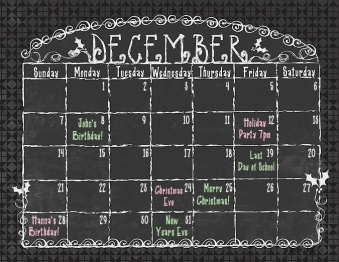 DECEMBER
Sunday Monday Tuesday Wednesday Thursday Friday Saturday
1 2 3 4 5 6
7 John's 8 9 10 11 Holiday 12 13
Birthday! Party 7pm
14 15 16 17 18 Last 19 20
Day of School
21 22 23 Christmas 24 Merry 25 26 27
Eve Christmas!
Hanna's 28 29 30 New 31
Birthday! Years Eve